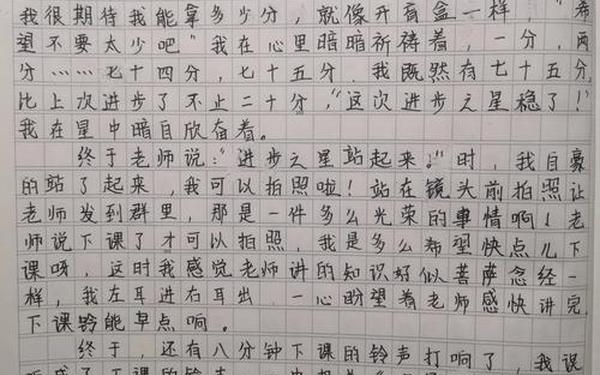 我很期待我能拿多少分，就像开盲盒一样，“希
望不要太少吧”我在心里暗暗祈祷着，一分，两
分……七十四分，七十五分，我既然有七十五分，
比上次进步了不止二十分，“这次进步之星稳了！”
我在星中暗自欣奋着。
终于老师说：“进步之星站起来！”时，我自豪
的站了起来，我可以拍照啦！站在镜头前拍照让
老师发到群里，那是一件多么光荣的事情啊！老
师说下课了才可以拍照，我是多么希望快点儿下
课呀，这时我感觉老师讲的知识好似菩萨念经一
样，我左耳进右耳出，一心盼望着老师感快讲完，
下课龄能早点响。
终于，还有八分钟下课的铃声打响了，我说